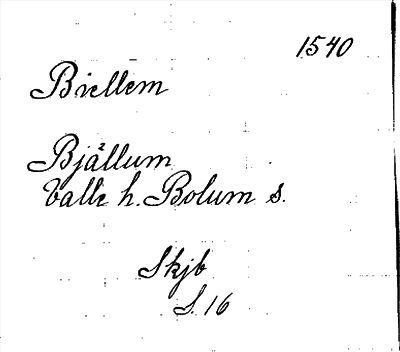 1540
Biellem
Bjällum
Valle h. Bolum s.
Skjb
S. 16